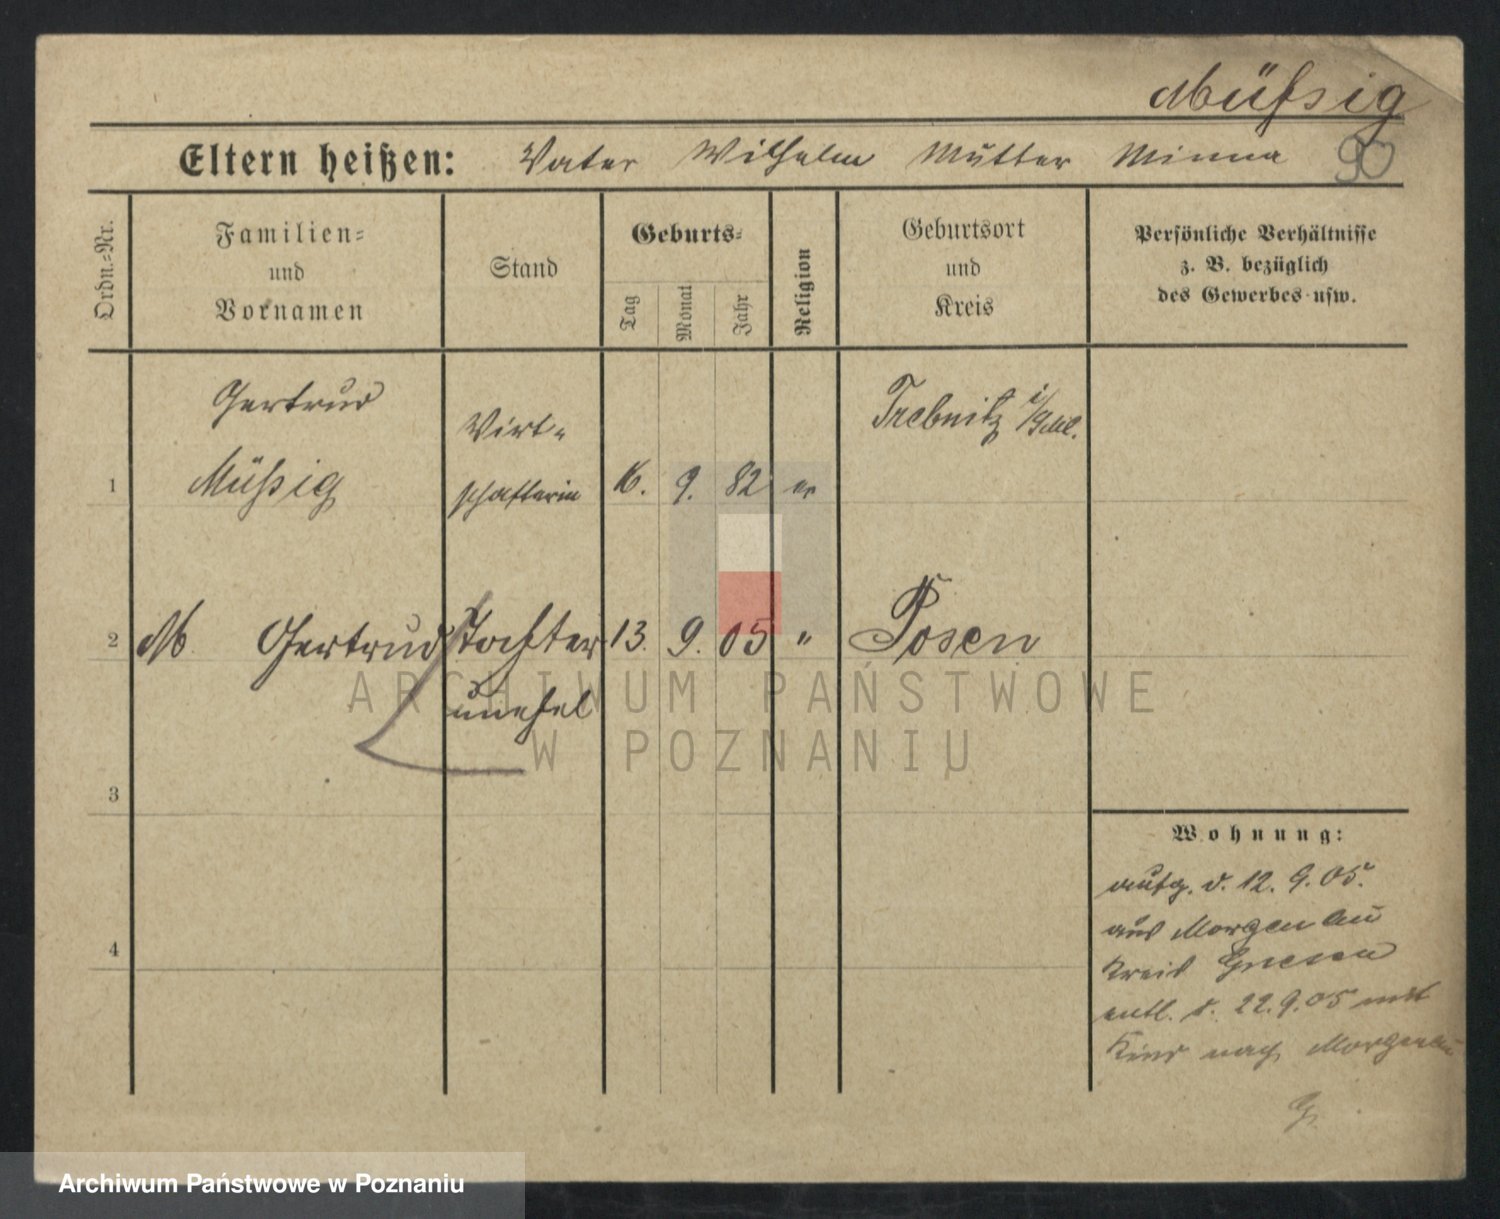 Müßig
Eltern heißen: Vater Wilhelm Mutter Minna 90
Ordn.-Nr.
Familien-
und
Vornamen
Stand
Geburts-
Tag
Monat
Jahr
Religion
Geburtsort
und
Kreis
Persönliche Verhältnisse
z. B. bezüglich
des Gewerbes usw.
1
Gertrud
Müßig
Wirt-
schafterin
16. 9. 82 ev
Trebnitz i/Schl.
2 M Gertrud Tochter 13. 9. 05 " Posen
unehel
3
4
Wohnung:
aufg. d. 12. 9. 05.
aus Morgenau
Kreis Gnesen
entl. d. 22. 9. 05 mit
Kind nach Morgenau
ARCHIWUM PAŃSTWOWE
W POZNANIU
Archiwum Państwowe w Poznaniu